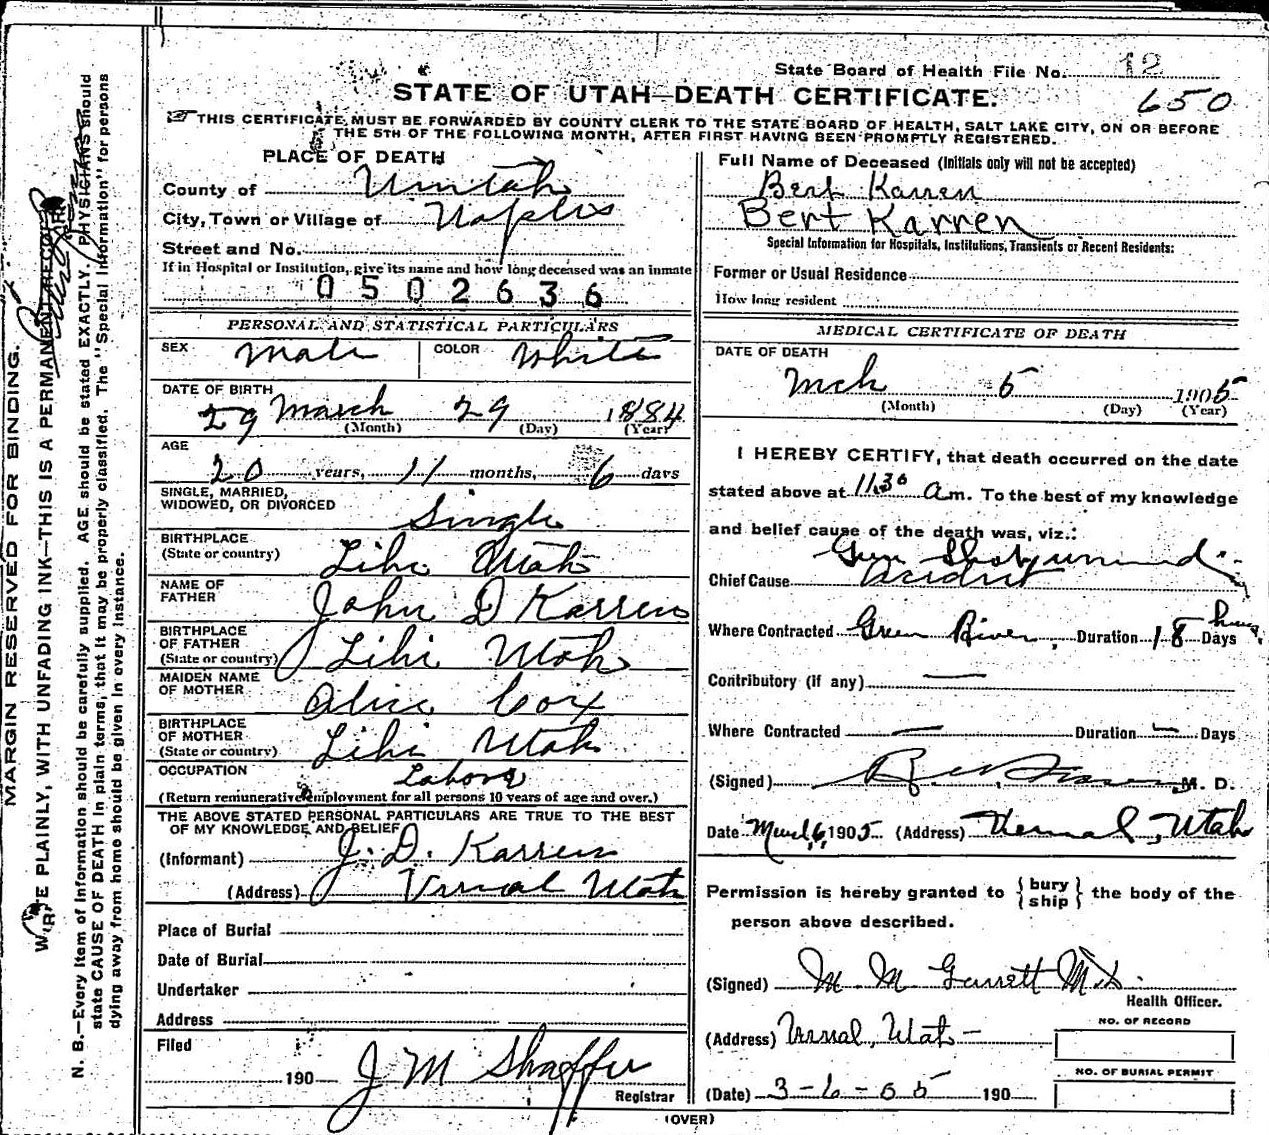 State Board of Health File No. 12
650
STATE OF UTAH—DEATH CERTIFICATE.
THIS CERTIFICATE MUST BE FORWARDED BY COUNTY CLERK TO THE STATE BOARD OF HEALTH, SALT LAKE CITY, ON OR BEFORE
THE 5TH OF THE FOLLOWING MONTH, AFTER FIRST HAVING BEEN PROMPTLY REGISTERED.
PLACE OF DEATH
County of Uintah
City, Town or Village of Naples
Street and No.
If in Hospital or Institution, give its name and how long deceased was an inmate
0502636
PERSONAL AND STATISTICAL PARTICULARS
SEX Male COLOR White
DATE OF BIRTH
29 March 29 1884
(Month) (Day) (Year)
AGE
20 years, 11 months, 6 days
SINGLE, MARRIED,
WIDOWED, OR DIVORCED Single
BIRTHPLACE
(State or country) Lihi Utah
NAME OF
FATHER John D Karren
BIRTHPLACE
OF FATHER
(State or country) Lihi Utah
MAIDEN NAME
OF MOTHER Alice Cox
BIRTHPLACE
OF MOTHER
(State or country) Lihi Utah
OCCUPATION Labora
(Return remunerative employment for all persons 10 years of age and over.)
THE ABOVE STATED PERSONAL PARTICULARS ARE TRUE TO THE BEST
OF MY KNOWLEDGE AND BELIEF
(Informant) J. D. Karren
(Address) Vernal Utah
Place of Burial
Date of Burial
Undertaker
Address
Filed
190 J M Shaffer
Registrar
Full Name of Deceased (Initials only will not be accepted)
Bert Karren
Bert Karren
Special Information for Hospitals, Institutions, Transients or Recent Residents:
Former or Usual Residence
How long resident
MEDICAL CERTIFICATE OF DEATH
DATE OF DEATH
Mch 5 1905
(Month) (Day) (Year)
I HEREBY CERTIFY, that death occurred on the date
stated above at 11.30 a.m. To the best of my knowledge
and belief cause of the death was, viz.:
Gun Shot wound
Chief Cause accident
Where Contracted Green River, Duration 18 hours Days
Contributory (if any) —
Where Contracted — Duration — Days
(Signed) M. D.
Date March 6, 1905 (Address) Vernal, Utah
Permission is hereby granted to {bury
ship} the body of the
person above described.
(Signed) M. M. Garrett M.D.
Health Officer.
(Address) Vernal, Utah—
NO. OF RECORD
NO. OF BURIAL PERMIT
(Date) 3-6-05 190
(OVER)
MARGIN RESERVED FOR BINDING.
WRITE PLAINLY, WITH UNFADING INK—THIS IS A PERMANENT RECORD
N. B.—Every item of information should be carefully supplied. AGE should be stated EXACTLY. PHYSICIANS should
state CAUSE OF DEATH in plain terms, that it may be properly classified. The "Special Information" for persons
dying away from home should be given in every instance.